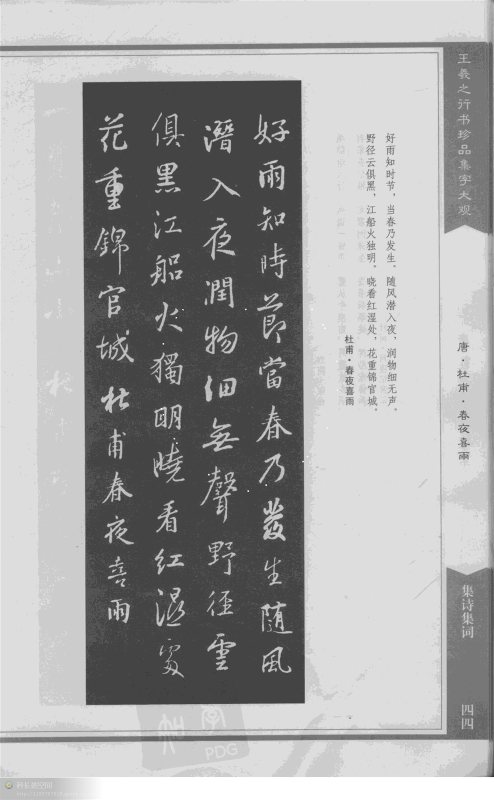 王羲之行书珍品集字大观
唐·杜甫·春夜喜雨
集诗集词
四四
好雨知时节，当春乃发生。随风潜入夜，润物细无声。
野径云俱黑，江船火独明。晓看红湿处，花重锦官城。
杜甫·春夜喜雨
好雨知時節當春乃發生随風
潛入夜潤物细無聲野径雲
俱黑江船火獨明曉看红濕處
花重錦官城杜甫春夜喜雨
PDG